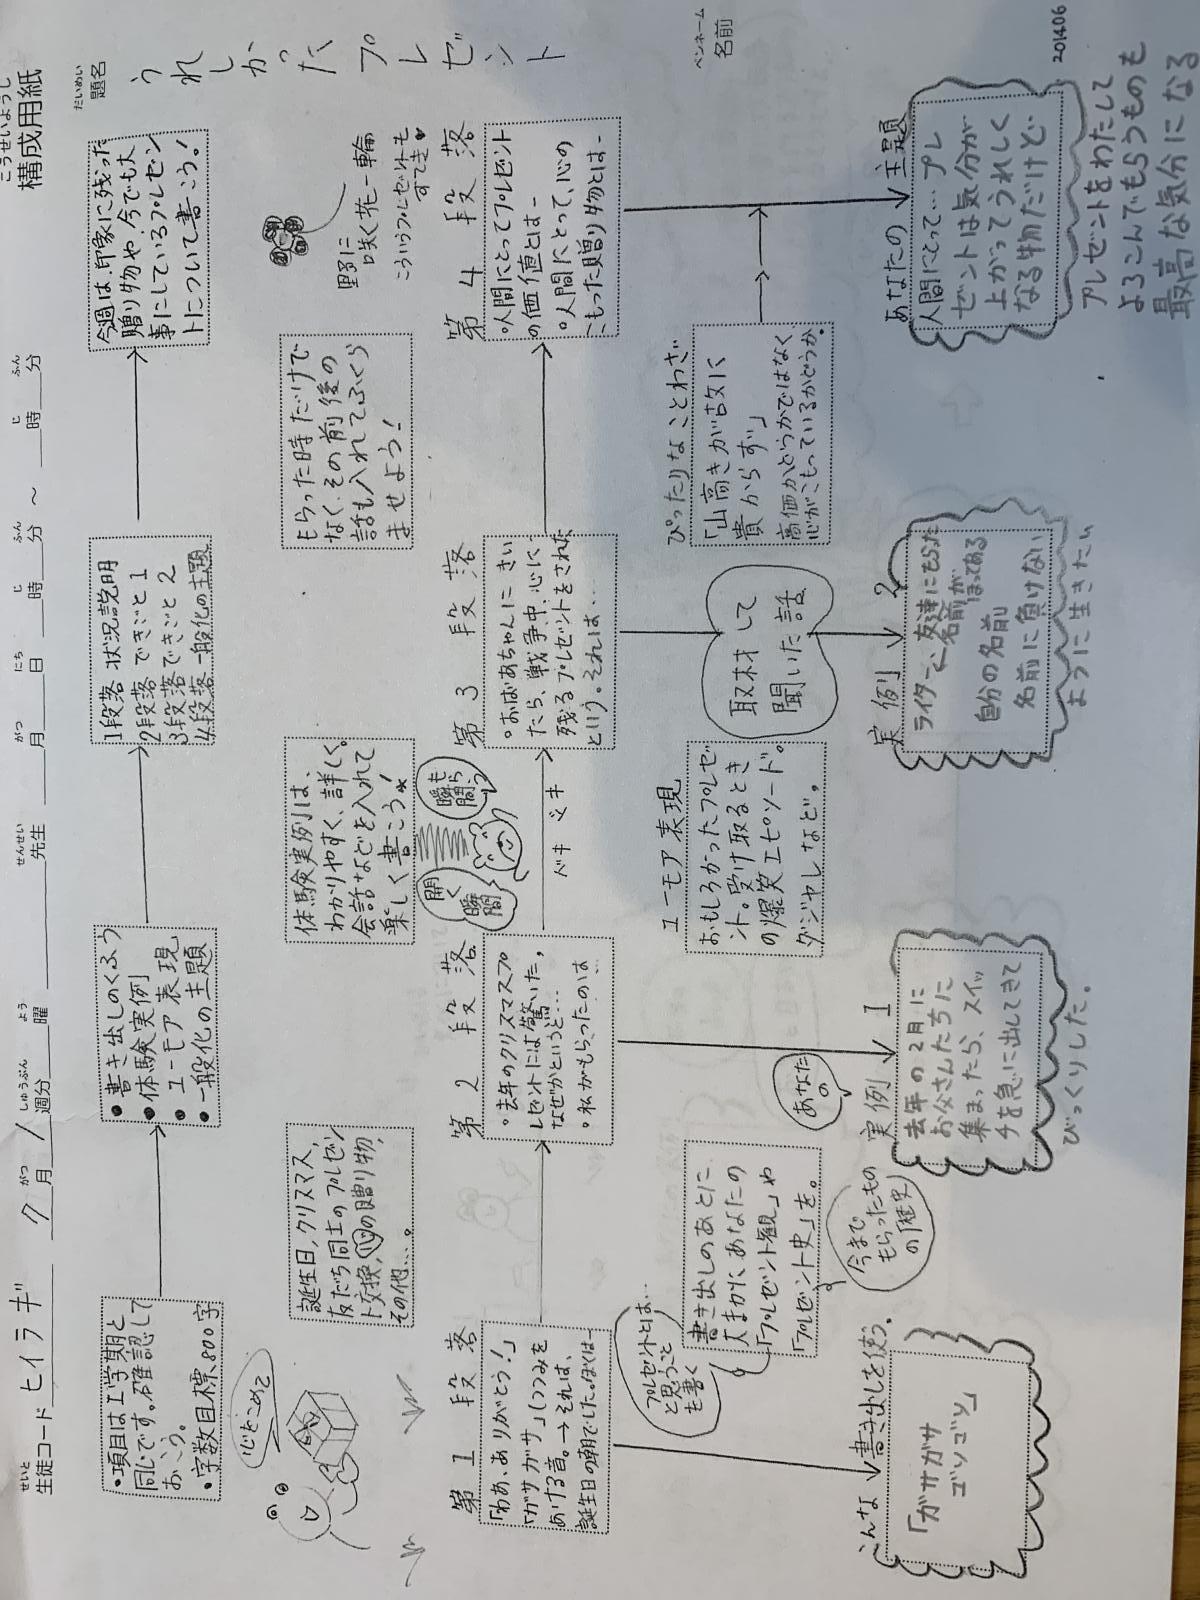 こうせいようし
構成用紙
せいと
生徒コード ヒイラギ 7月 1週分 曜 先生 月 日 時 分 ～ 時 分
がつ しゅうぶん よう せんせい がつ にち じ ふん じ ふん
だいめい
題名
うれしかったプレゼント
ペンネーム
名前
・項目は1学期と
同じです。確認して
おこう。
・字数目標800字
● 書き出しのくふう
● 体験実例
● ユーモア表現
● 一般化の主題
1段落 状況説明
2段落 できごと1
3段落 できごと2
4段落 一般化の主題
今週は、印象に残った
贈り物や、今でも大
事にしているプレゼン
トについて書こう!
心をこめて
誕生日、クリスマス、
友だち同士のプレゼン
ト交換、心の贈り物、
その他…。
体験実例は、
わかりやすく、詳しく。
会話などを入れて
楽しく書こう!
開く
瞬間
瞬間も
もらった時だけで
なく、その前後の
話も入れてふくら
ませよう!
野に
咲く花一輪
こういうプレゼントも
すてき。
第1段落
「わあ、ありがとう!」
「ガサガサ」(つつみを
あける音。→それは、
誕生日の朝でした。ぼくは…
第2段落
・去年のクリスマスプ
レゼントには驚いた。
なぜかというと…
・私がもらったのは…
ドキドキ
第3段落
・おばあちゃんにきい
たら、戦争中、心に
残るプレゼントをされた
という。それは…
第4段落
・人間にとってプレゼント
の価値とは…
・人間にとって、心の
こもった贈り物とは…
プレゼントとは…
と思うこと
を書く
書き出しのあとに
大まかに、あなたの
「プレゼント観」や
「プレゼント史」を。
今まで
もらったもの
の「歴史」
あなた
の
ユーモア表現
おもしろかったプレゼ
ント。受け取るとき
の爆笑エピソード。
ダジャレなど。
取材して
聞いた話
ぴったりなことわざ
「山高きが故に
貴からず」
高価かどうかではなく、
心がこもっているかどうか。
こんな書き出しを使う。
「ガサガサ
ゴソゴソ」
実例1
去年の2月に
お父さんたちに
集まったら、スイッ
チを急に出してきて
びっくりした。
実例2
ライター 友達にもらった
名前が
ほってある
自分の名前
名前に負けない
ように生きたい
あなたの主題
人間にとって…プレ
ゼントは気分が
上がってうれしく
なる物だけど
プレゼントをわたして
よろこんでもらうものも
最高な気分になる
201406